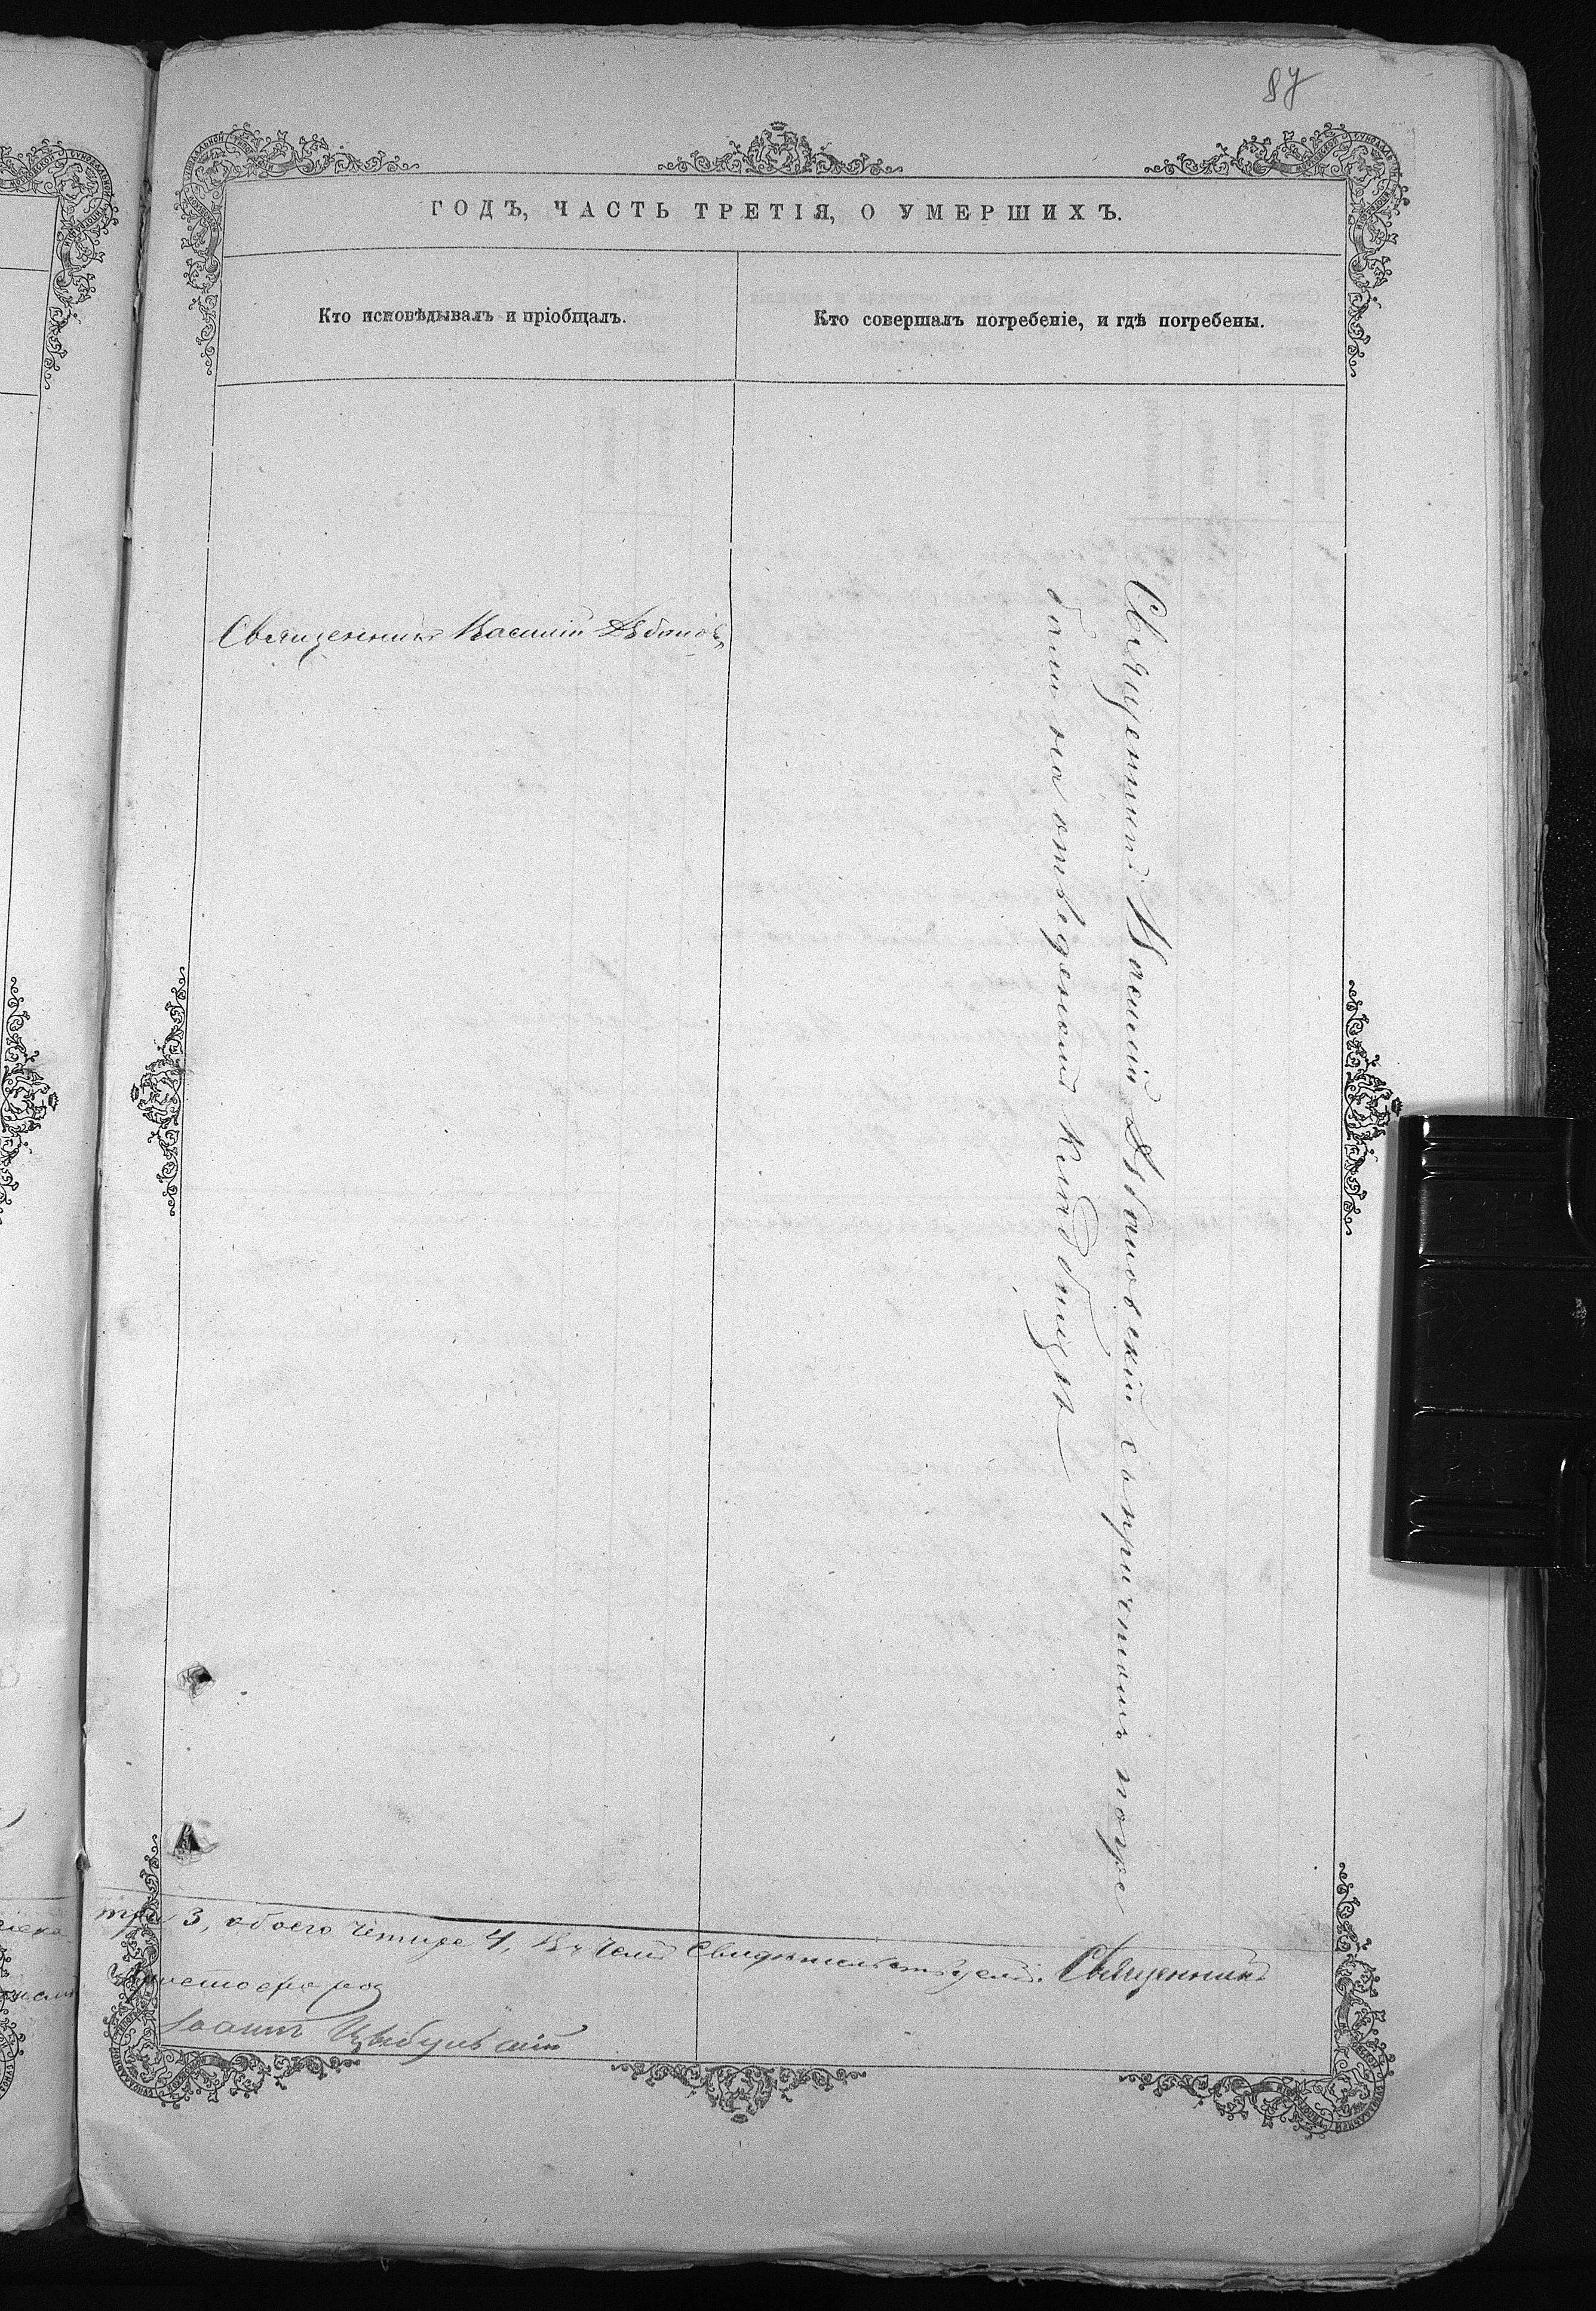 87
ГОДЪ, ЧАСТЬ ТРЕТІЯ, О УМЕРШИХЪ.
Кто исповѣдывалъ и пріобщалъ.
Кто совершалъ погребеніе, и гдѣ погребены.
Священникъ Василій
Священникъ Василій съ причтомъ погре
бали на отведеномъ кладбищѣ
три 3, обоего четыре 4, въ чемъ свидѣтельствуемъ: Священникъ
Іоаннъ